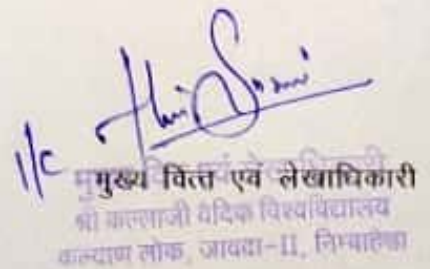 I/C
मुख्य वित्त एवं लेखाधिकारी
श्री कल्लाजी वैदिक विश्वविद्यालय
कल्याण लोक, जावदा-II, निम्बाहेड़ा